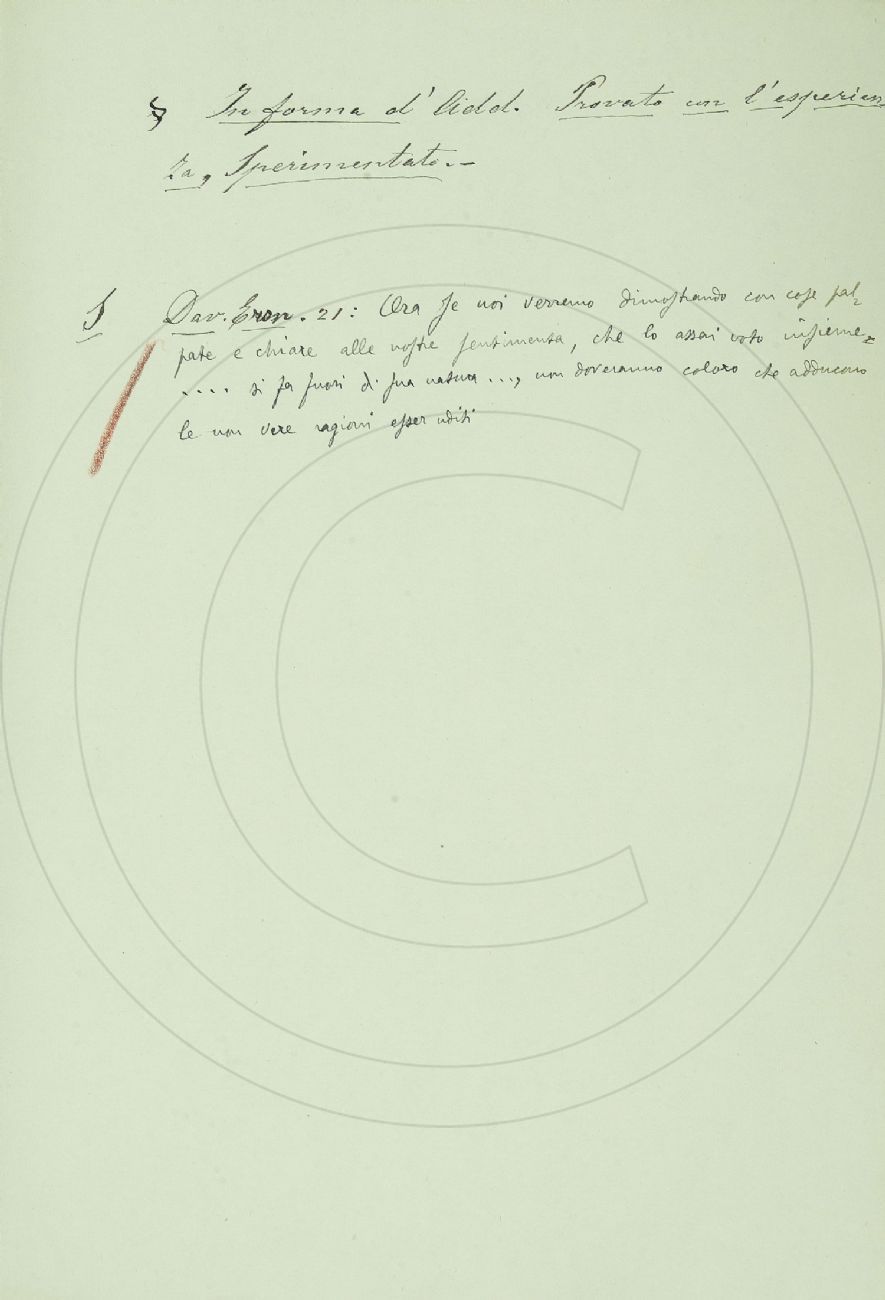 § In forma d'Add. Provato con l'esperien
za, Sperimentato. -
§ Dav. Eron. 21: Ora se noi verremo dimostrando con cose pal-
pate e chiare alle nostre sentimenta, che lo assai voto insieme
.... si fa fuori di sua natura ..., non doveranno coloro che adducono
le non vere ragioni esser uditi